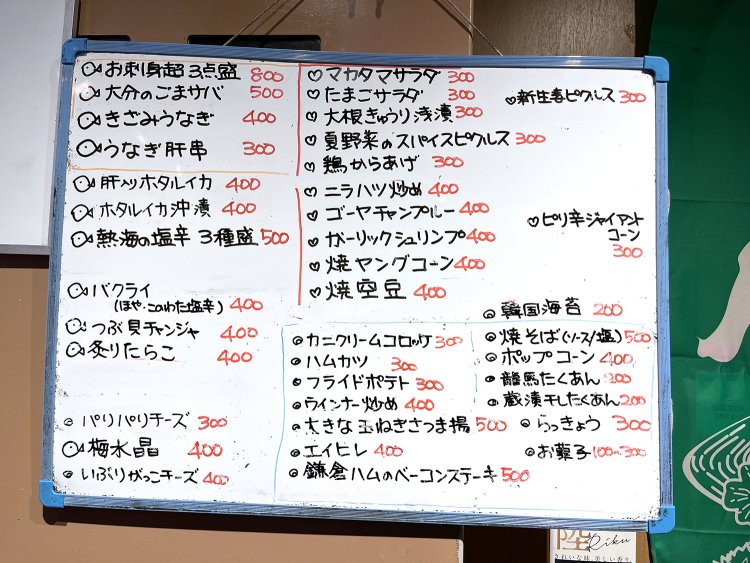 お刺身超3点盛 800
大分のごまサバ 500
きざみうなぎ 400
うなぎ肝串 300
肝入りホタルイカ 400
ホタルイカ沖漬 400
熱海の塩辛 3種盛 500
バクライ
(ほや・このわた塩辛) 400
つぶ貝チャンジャ 400
炙りたらこ 400
パリパリチーズ 300
梅水晶 400
いぶりがっこチーズ 400
マカタマサラダ 300
たまごサラダ 300
大根きゅうり浅漬 300
夏野菜のスパイスピクルス 300
鶏からあげ 300
ニラハツ炒め 400
ゴーヤチャンプルー 400
ガーリックシュリンプ 400
焼ヤングコーン 400
焼空豆 400
新生姜ピクルス 300
ピリ辛ジャイアント
コーン
300
韓国海苔 200
カニクリームコロッケ 300
ハムカツ 300
フライドポテト 300
ウインナー炒め 400
大きな玉ねぎさつま揚 500
エイヒレ 400
鎌倉ハムのベーコンステーキ 500
焼そば(ソース/塩) 500
ポップコーン 400
龍馬たくあん 200
蔵漬干したくあん 200
らっきょう 300
お菓子 100〜300
陸
Riku
きれいな味 美しい香り